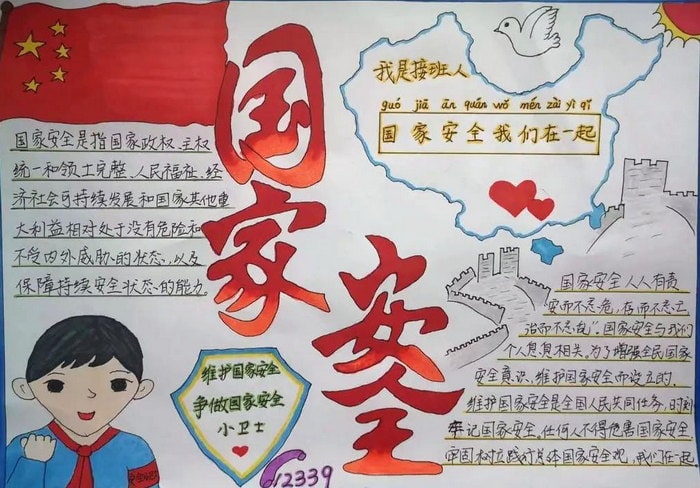 国家安全
国家安全是指国家政权、主权
统一和领土完整、人民福祉、经
济社会可持续发展和国家其他重
大利益相对处于没有危险和
不受内外威胁的状态,以及
保障持续安全状态的能力
我是接班人
guó jiā ān quán wǒ men zài yì qǐ
国家安全我们在一起
维护国家安全
争做国家安全
小卫士
12339
国家安全人人有责
安而不忘危,存而不忘亡
治而不忘乱",国家安全与我们
个人息息相关。为了增强全民国家
安全意识、维护国家安全而设立的,
维护国家安全是全国人民共同任务,时刻
牢记国家安全,任何人不得危害国家安全
牢固树立践行总体国家安全观,我们在一起